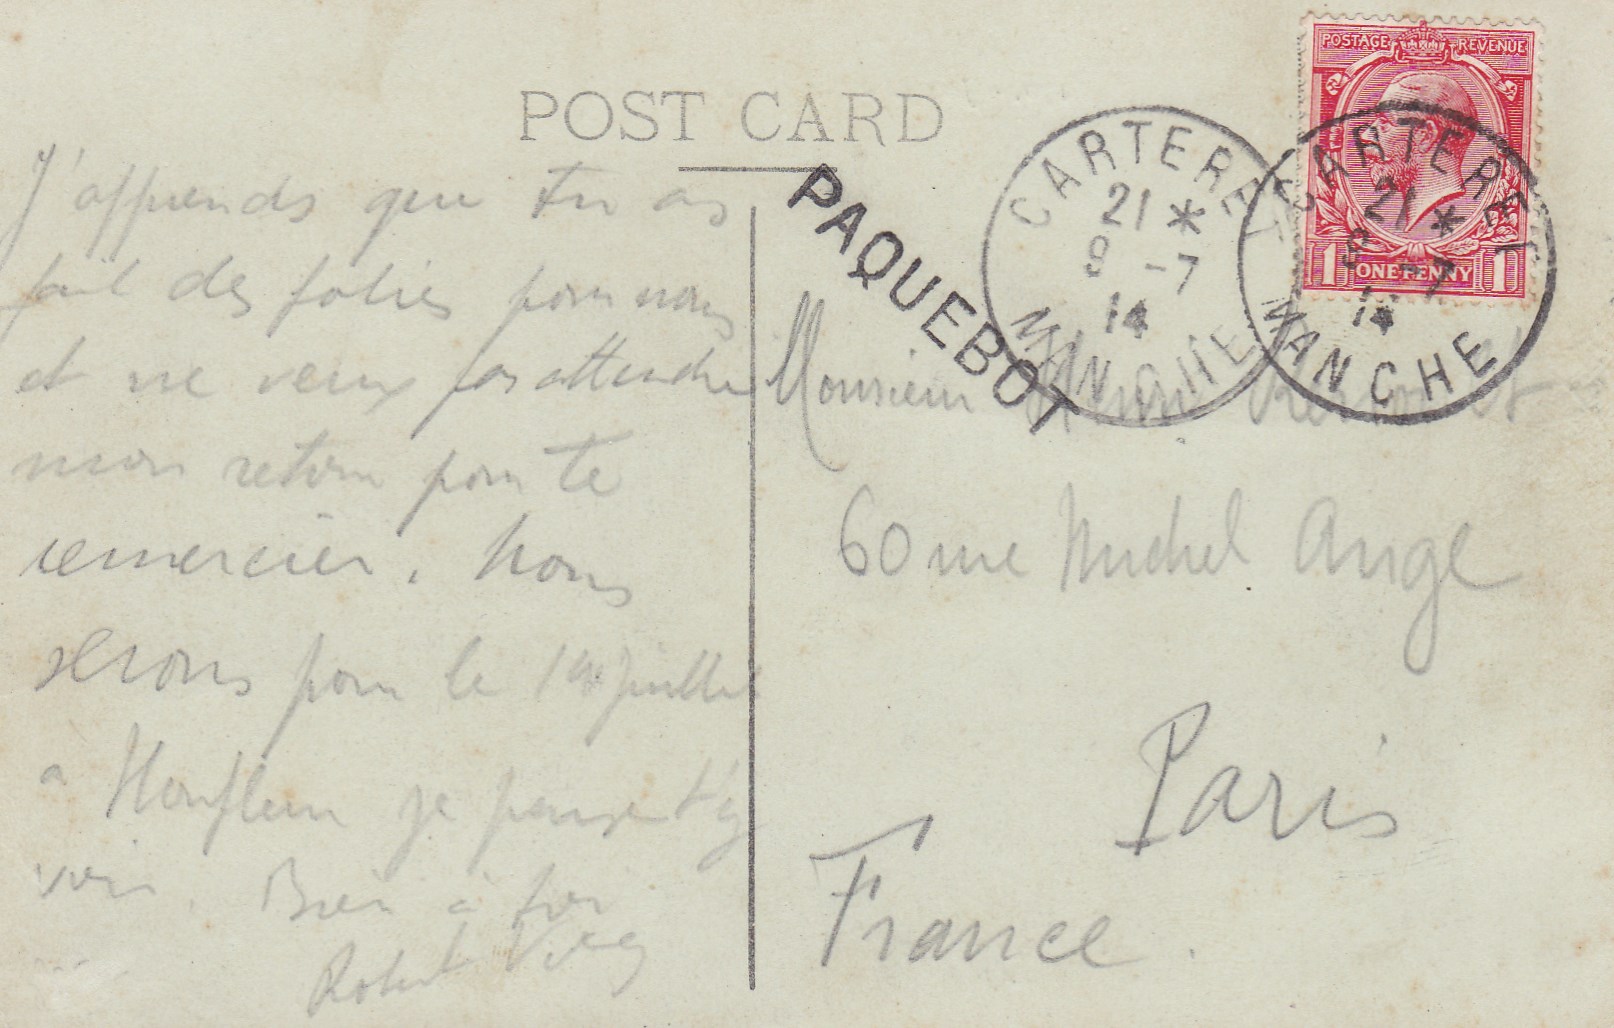 POST CARD
POSTAGE REVENUE
1 ONE PENNY 1
CARTERET
21 *
9 -7
14
MANCHE
CARTERET
21 *
9 -7
14
MANCHE
PAQUEBOT
J'apprends que tu as
fait des folies pour nous
et ne veux pas attendre
mon retour pour te
remercier. Nous
serons pour le 14 juillet
a Honfleur je pense t'y
voir. Bien à toi
Robert
Monsieur
60 rue Michel Ange
Paris
France.